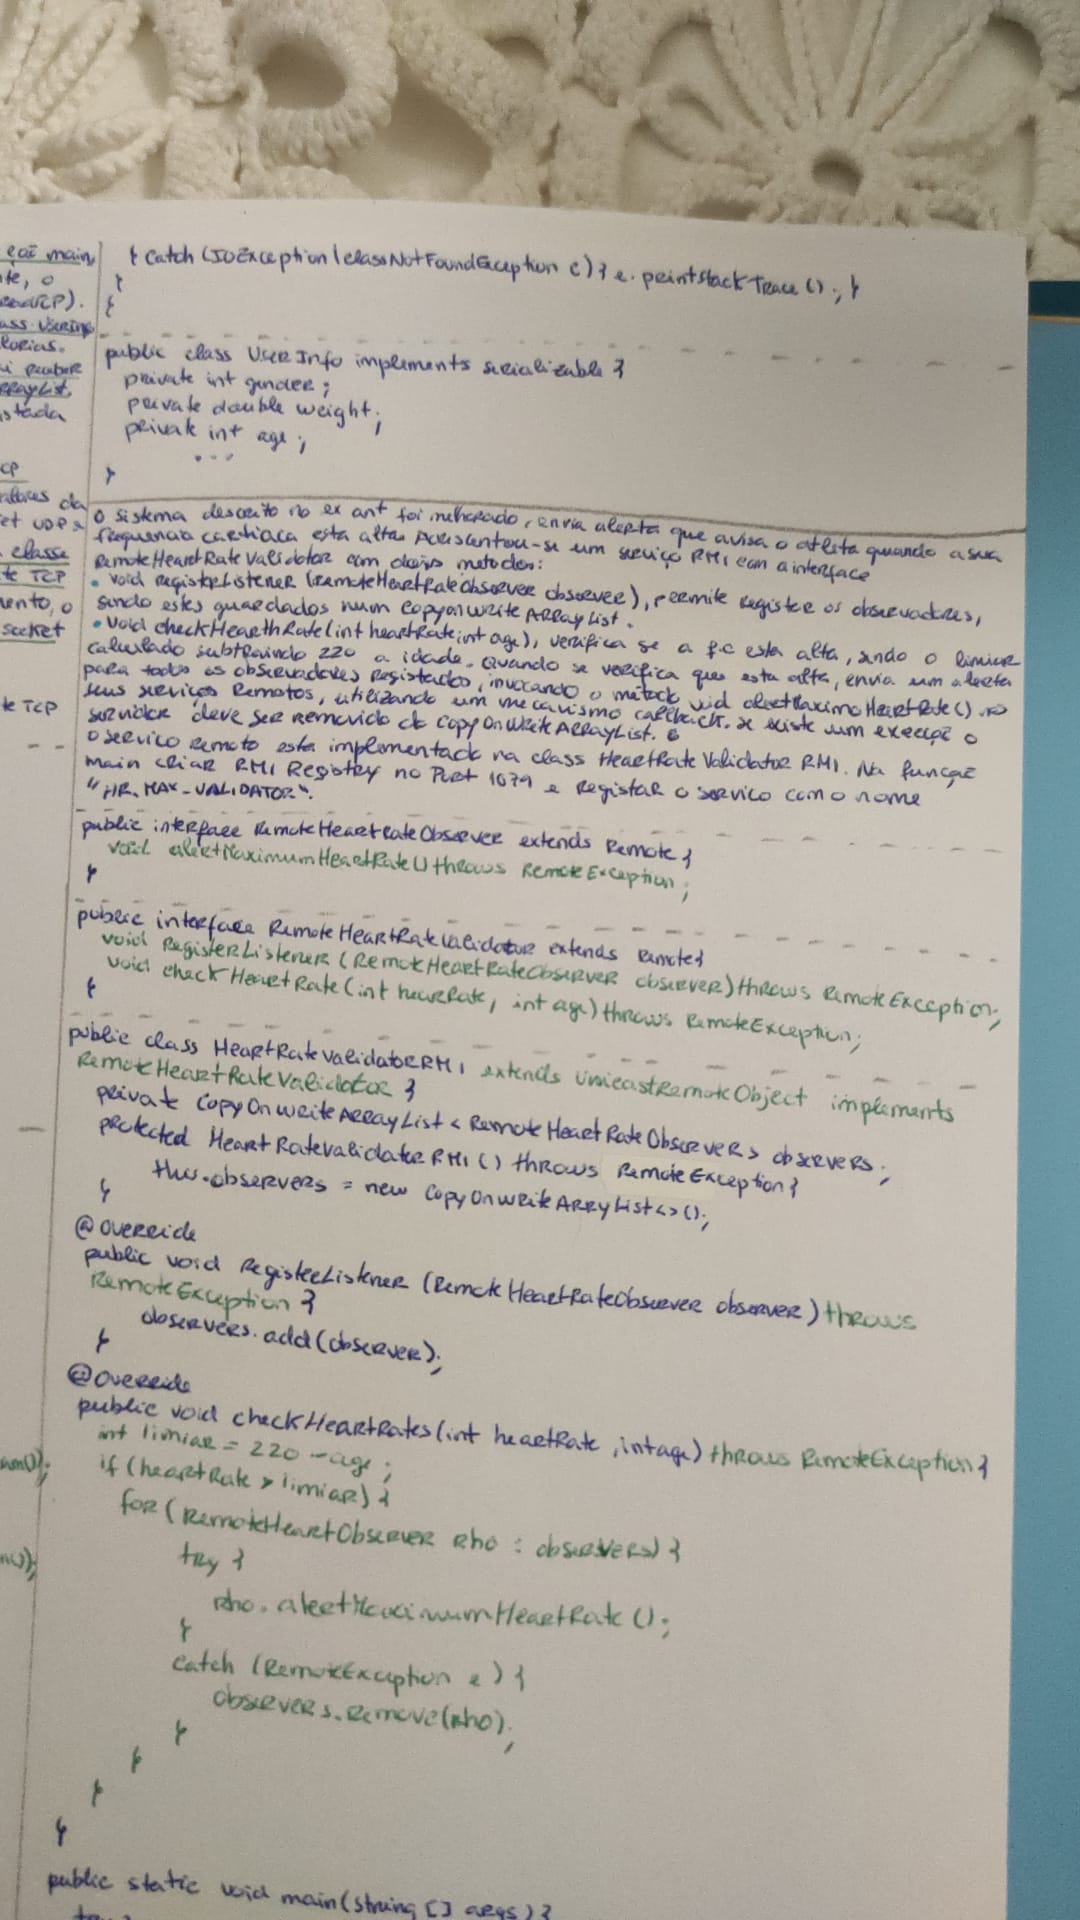 ção main,
te, o
readTCP).
ass UserInfo
lorias.
ArrayList,
istada
CP
alores da
et UDP
classe
te TCP
mento, o
socket
te TCP
} catch (IOException | classNotFoundException e) { e.printstackTrace(); }
}
}
public class UserInfo implements serializable {
private int gender;
private double weight;
private int age;
...
}
O sistema descrito no ex ant foi melhorado, envia alerta que avisa o atleta quando a sua
frequencia cardiaca esta alta. Acrescentou-se um serviço RMI com a interface
RemoteHeartRateValidator com dois metodos:
• void registerListener (RemoteHeartRateObserver observer), permite registar os observadores,
sendo estes guardados num CopyonWriteArrayList.
• void checkHearthRate(int heartRate, int age), verifica se a f.c esta alta, sendo o limiar
calculado subtraindo 220 a idade. Quando se verifica que esta alta, envia um alerta
para todos os observadores registados, invocando o método void alertMaximoHeartRate() nos
seus serviços Remotos, utilizando um mecanismo callback. se existe um execeçõ o
servidor deve ser removido do CopyOnWriteArrayList.
O servico remoto esta implementado na class HeartRateValidatorRMI. Na funçaõ
main criar RMI Registry no Port 1079 e Registar o servico com o nome
"HR_MAX_VALIDATOR".
public interface RemoteHeartRateObserver extends Remote {
void alertMaximumHeartRate() throws RemoteException;
}
public interface RemoteHeartRateValidator extends Remote {
void RegisterListener (RemoteHeartRateObserver observer) throws RemoteException;
void checkHeartRate (int heartRate, int age) throws RemoteException;
}
public class HeartRateValidatorRMI extends UnicastRemoteObject implements
RemoteHeartRateValidator {
private CopyOnWriteArrayList < RemoteHeartRateObserver > observers;
protected HeartRateValidatorRMI () throws RemoteException {
this.observers = new CopyOnWriteArrayList<>();
}
@override
public void RegisterListener (RemoteHeartRateObserver observer) throws
RemoteException {
observers.add(observer);
}
@override
public void checkHeartRates (int heartRate, int age) throws RemoteException {
int limiar = 220 - age;
if (heartRate > limiar) {
for (RemoteHeartObserver rho : observers) {
try {
rho.alertMaximumHeartRate ();
}
catch (RemoteException e) {
observers.Remove(rho);
}
}
}
}
public static void main (string [] args) {
try {